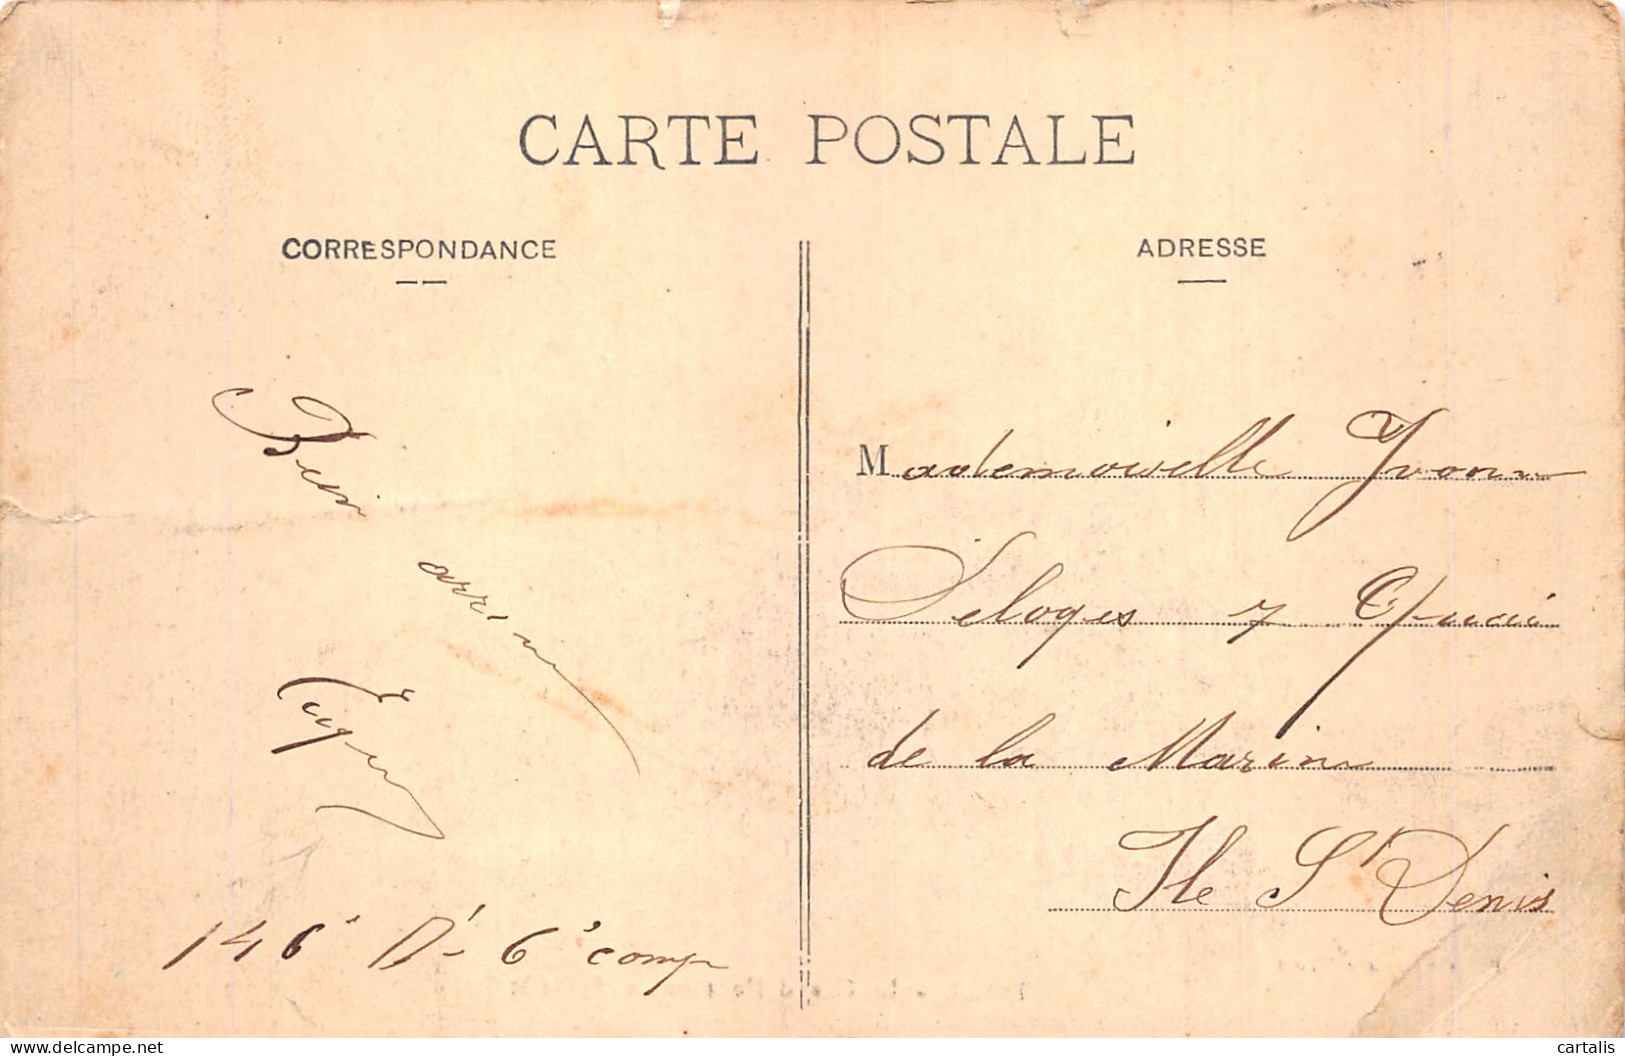 CARTE POSTALE
CORRESPONDANCE
ADRESSE
Bien
arrivé
Eugène
146e D. 6e comp
Mademoiselle Yvonne
Seloges 7 Quai
de la Marine
Ile St Denis
www.delcampe.net
cartalis